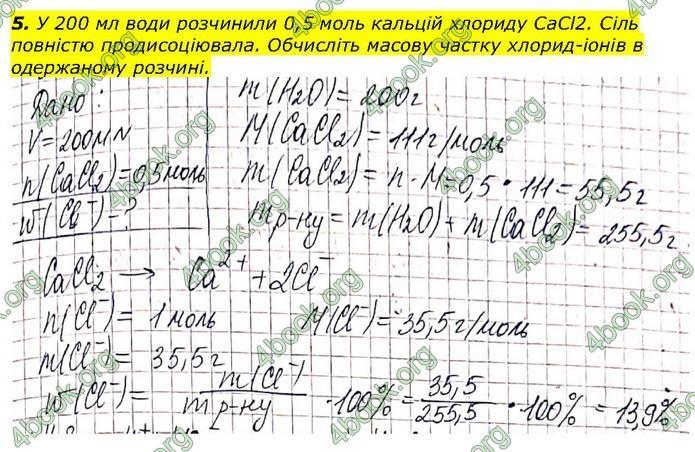 5. У 200 мл води розчинили 0,5 моль кальцій хлориду CaCl2. Сіль
повністю продисоціювала. Обчисліть масову частку хлорид-іонів в
одержаному розчині.
Дано:
V = 200мл
n(CaCl₂) = 0,5моль
w(Cl⁻) = ?
m(H₂O) = 200г
M(CaCl₂) = 111г/моль
m(CaCl₂) = n · M = 0,5 · 111 = 55,5г
m р-ну = m(H₂O) + m(CaCl₂) = 255,5г
CaCl₂ → Ca²⁺ + 2Cl⁻
n(Cl⁻) = 1моль M(Cl⁻) = 35,5г/моль
m(Cl⁻) = 35,5г
w(Cl⁻) = m(Cl⁻) / m р-ну · 100% = 35,5 / 255,5 · 100% = 13,9%
4book.org